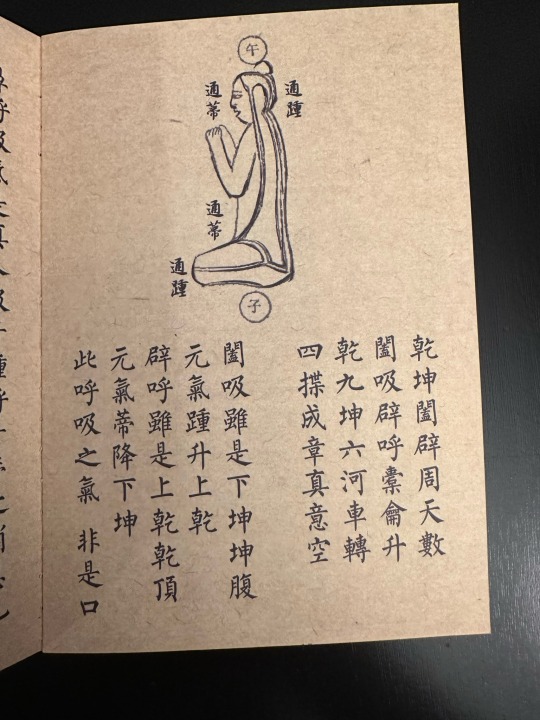 午
通踵
通蒂
通蒂
通踵
子
乾坤闔辟周天數
闔吸辟呼橐籥升
乾九坤六河車轉
四揲成章真意空
闔吸雖是下坤坤腹
元氣踵升上乾
辟呼雖是上乾乾頂
元氣蒂降下坤
此呼吸之氣 非是口